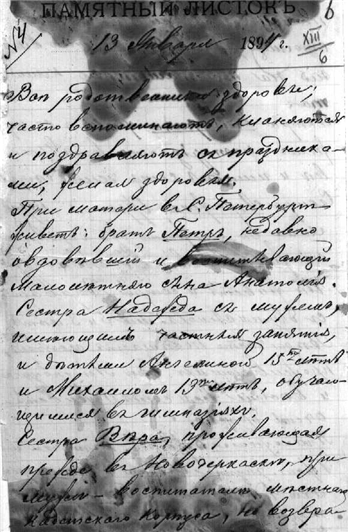 ПАМЯТНЫЙ ЛИСТОКЪ
6
№4
13 Января 1894 г.
XIII
6
Вас родственники здоровы;
часто вспоминаютъ, кланяются
и поздравляютъ съ праздника-
ми, желая здоровья.
При матери в С. Петербургѣ
живетъ: братъ Петръ, недавно
овдовѣвшій и воспитывающій
малолѣтняго сына Анатолія.
Сестра Надежда съ мужемъ,
имѣющимъ частныя занятія,
и дѣтьми Ангелиной 15ти лѣтъ
и Михаиломъ 13ти лѣтъ, обучаю-
щимися въ гимназіяхъ.
Сестра Вѣра, проживающая
прежде въ Новочеркасскѣ, при
мужѣ - воспитателѣ мѣстнаго
Кадетскаго корпуса, но возвра-